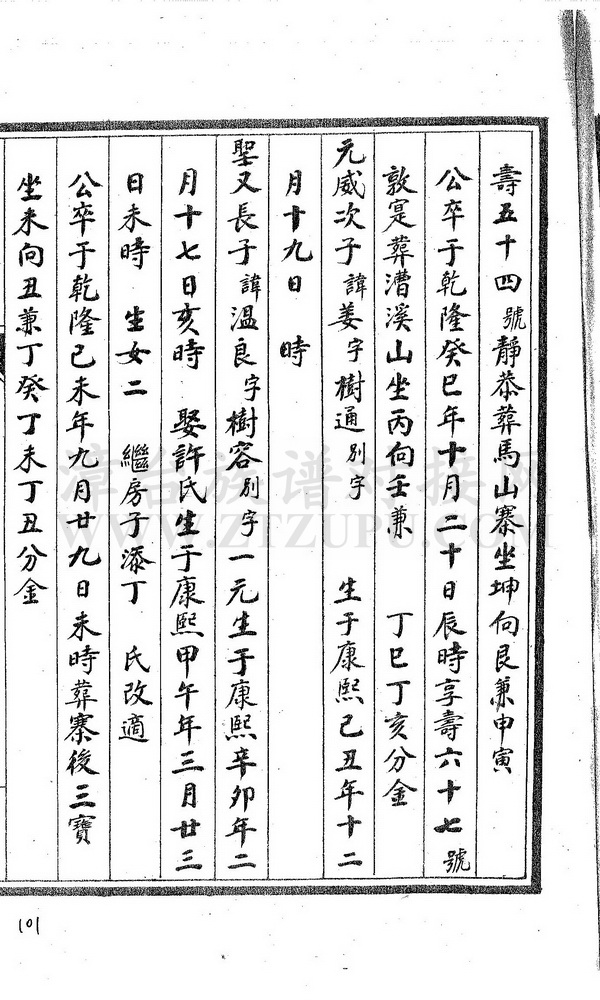 壽五十四號靜恭葬馬山寨坐坤向艮兼申寅
公卒于乾隆癸巳年十月二十日辰時享壽六十七號
敦寔葬漕溪山坐丙向壬兼 丁巳丁亥分金
元威次子諱姜字樹通別字 生于康熙己丑年十二
月十九日 時
聖又長子諱溫良字樹容別字一元生于康熙辛卯年二
月十七日亥時 娶許氏生于康熙甲午年三月廿三
日未時 生女二 繼房子添丁 氏改適
公卒于乾隆己未年九月廿九日未時葬寨後三寶
坐未向丑兼丁癸丁未丁丑分金
漳台族谱对接网
WWW.ZTZUPU.COM
101